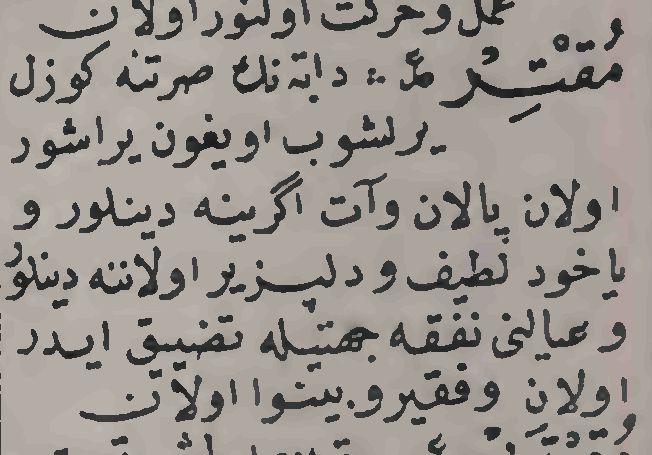 عمل و حركت اولنور اولان
مُقْتِرْ عد :: دابّه نك صرتنه كوزل
يرلشوب اويغون يراشور
اولان پالان وآت اگرينه دينلور و
ياخود لطيف و دلپزير اولاننه دينلور
و عيالنى نفقه جهتيله تضييق ايدر
اولان و فقير و بينوا اولان